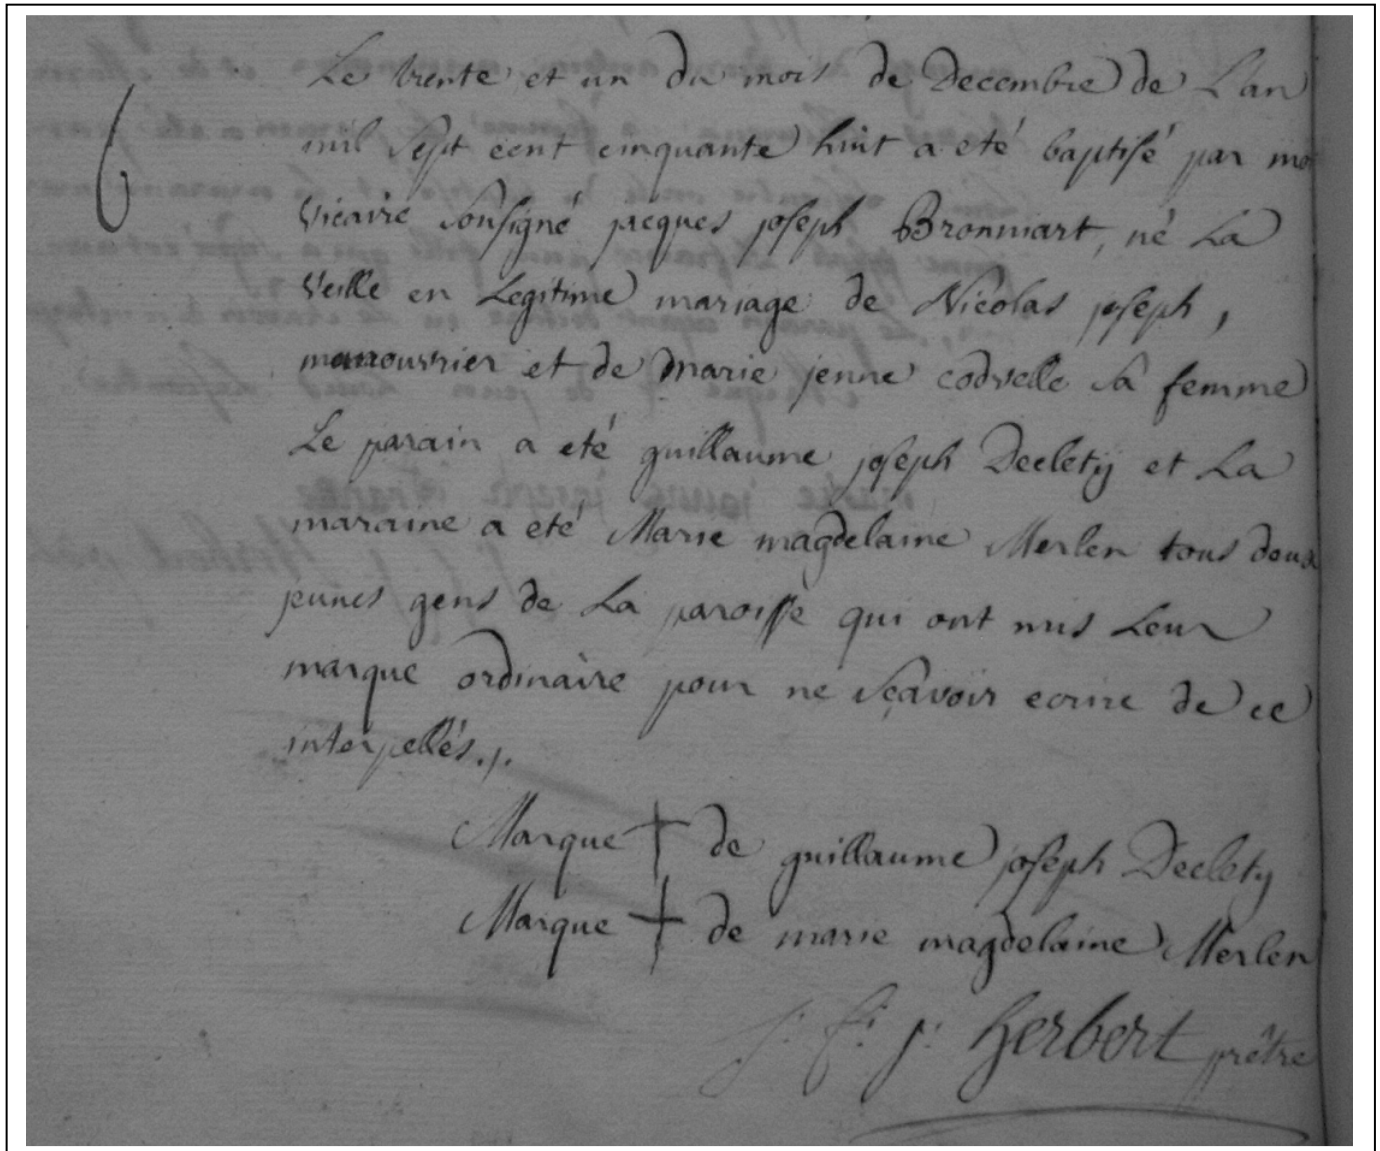 6
Le trente et un du mois de Decembre de L'an
mil Sept cent cinquante huit a eté baptisé par moi
vicaire Sousigné jacques joseph Bronniart, né La
veille en Legitime mariage de Nicolas joseph,
manouvrier et de marie jenne codvelle sa femme
Le parain a eté guillaume joseph Declety et La
maraine a eté Marie magdelaine Merlen tous deux
jeunes gens de La paroisse qui ont mis Leur
marque ordinaire pour ne sçavoir ecrire de ce
interpellés./.
Marque + de guillaume joseph Declety
Marque + de marie magdelaine Merlen
j: f: j: herbert prêtre